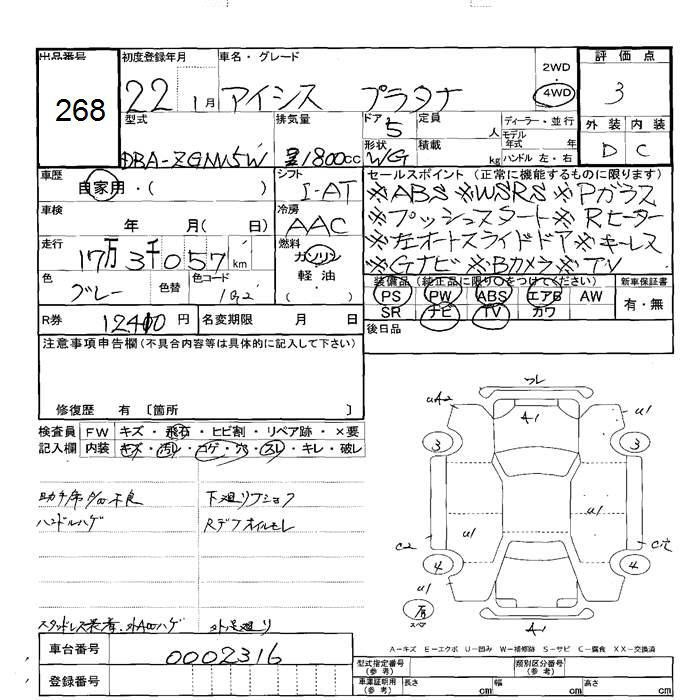 出品番号 初度登録年月 車名・グレード 2WD 評価点
268 22 1月 アイシス プラタナ 4WD 3
型式 排気量 ドア 5 定員 人 ディーラー・並行 外装 内装
DBA-ZGM15W 1800cc 形状 WG 積載 kg モデル年式 年 ハンドル 左・右 D C
車歴 自家用・( ) シフト I-AT セールスポイント(正常に機能するものに限ります)
※ABS ※WSRS ※Pガラス
車検 年 月( 日) 冷房 AAC ※プッシュスタート ※Rヒーター
走行 17万3千057km 燃料 ガソリン ※左オートスライドドア ※キーレス
軽油 ※Gナビ ※Bカメラ ※TV
色 グレー 色替 色コード ( ) 装備品(純正品に限り○をつけてください) 新車保証書
PS PW ABS エアB AW 有・無
SR ナビ TV カワ
R券 12410円 名変期限 月 日 後日品
注意事項申告欄(不具合内容等は具体的に記入して下さい)
修復歴 有 〔箇所 〕
検査員 FW キズ・飛石・ヒビ割・リペア跡・×要
記入欄 内装 キズ・汚レ・コゲ・穴・スレ・キレ・破レ
下廻りサビ
ハンドルハゲ Rデフオイルモレ
外足廻り
フレ
uA2 A1 u1
3 3
u1 u1
C2
4 4
u1
スペア A1
A-キズ E-エクボ U-凹み W-補修跡 S-サビ C-腐食 XX-交換済
車台番号 0002316
登録番号
型式指定番号(参考) 類別区分番号(参考)
車庫証明用(参考) 長さ cm 幅 cm 高さ cm